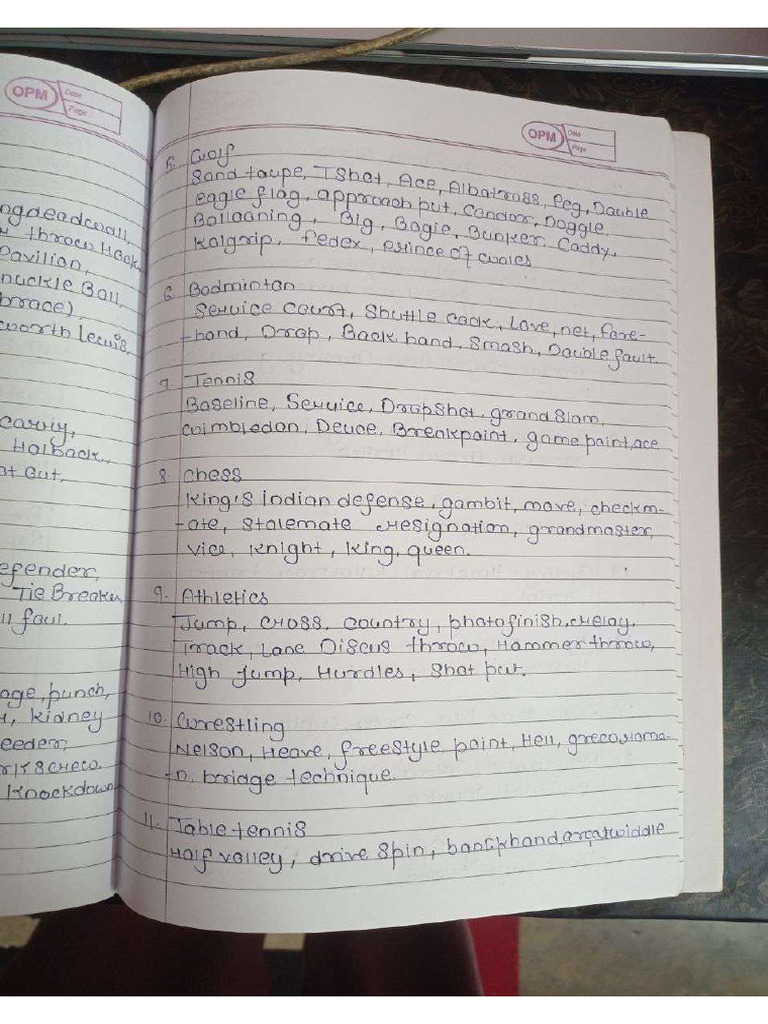 OPM
Date
Page
ngdeadwall,
throw Hook
Pavilion,
nuckle Ball,
brace)
worth Lewis,
carriy,
Halback,
ot Gut,
efender,
Tie Breaker
ll faul.
age, punch,
kidney
eeder,
Knockdown
OPM
Date
Page
5. Golf
Sand taupe, T Shot, Ace, Albatross, Peg, Double
eagle flag, approach put, Condor, Doggle
Ballooning, Big, Bogie, Bunker, Caddy,
Kolgrip, fedex, prince of wales
6. Badminton
Service court, Shuttle cock, Love, net, fore-
-hand, Drop, Back hand, Smash, Double fault.
7. Tennis
Baseline, Service, Dropshot, grand slam,
wimbledon, Deuce, Breakpoint, game point, ace
8. Chess
King's indian defense, gambit, move, checkm-
-ate, Stalemate resignation, grandmaster,
vice, Knight, King, queen.
9. Athletics
Jump, cross. country, photofinish, relay,
Track, Lane Discus throw, Hammer throw,
High jump, Hurdles, Shot put.
10. Wrestling
Nelson, Heave, freestyle point, Hell, grecoroma-
-n, bridge technique.
11. Table tennis
Half volley, drive spin, backhand, arc, twiddle